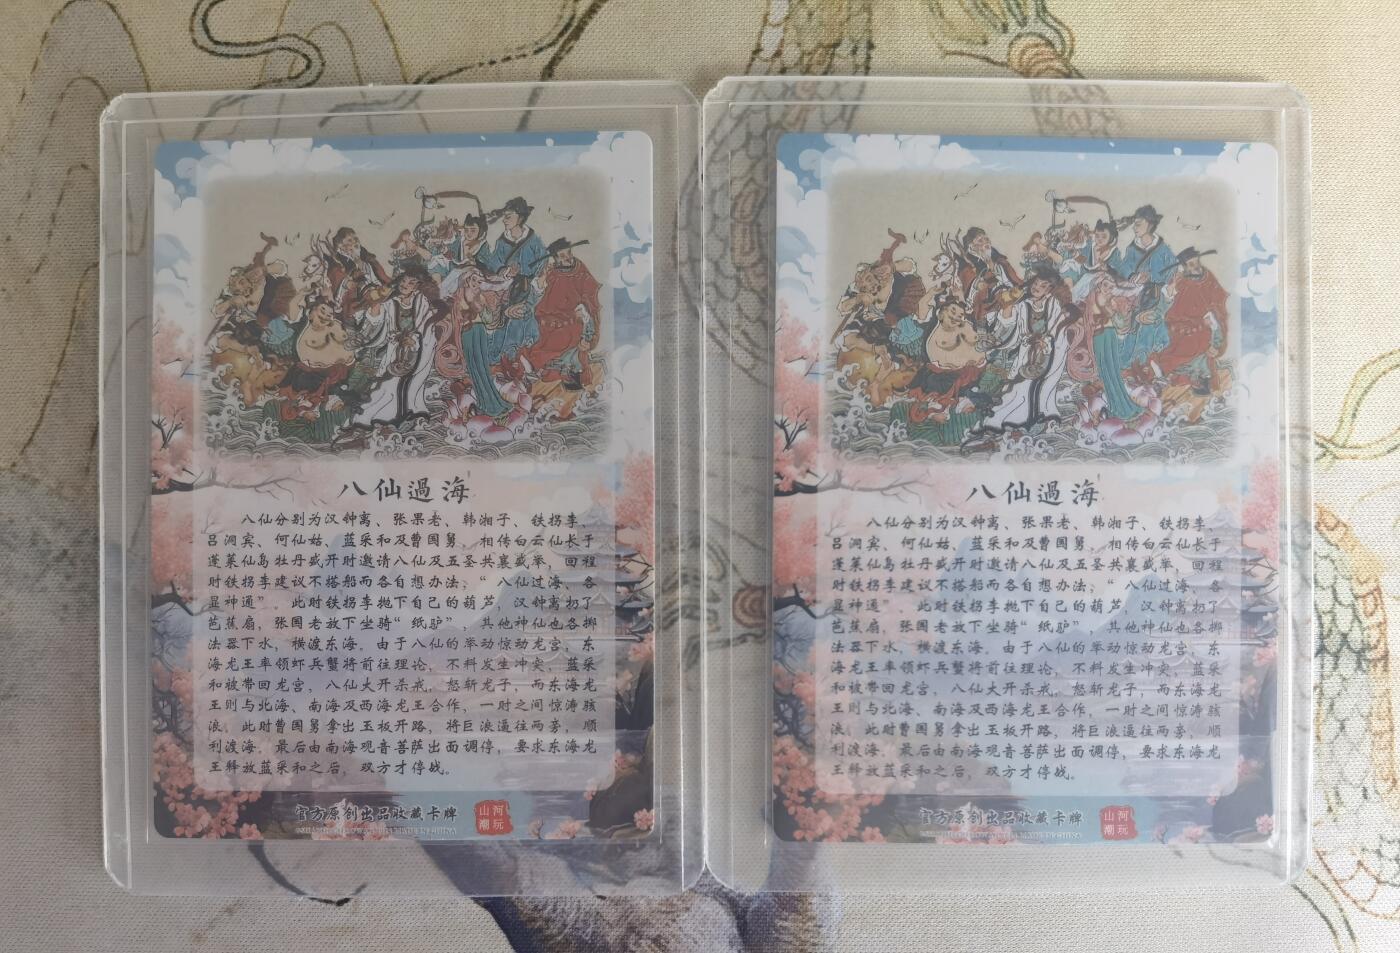 八仙過海
八仙分别为汉钟离、张果老、韩湘子、铁拐李、
吕洞宾、何仙姑、蓝采和及曹国舅，相传白云仙长于
蓬莱仙岛牡丹盛开时邀请八仙及五圣共襄盛举，回程
时铁拐李建议不搭船而各自想办法，“八仙过海、各
显神通”。此时铁拐李抛下自己的葫芦，汉钟离扔了
芭蕉扇，张国老放下坐骑“纸驴”，其他神仙也各掷
法器下水，横渡东海。由于八仙的举动惊动龙宫，东
海龙王率领虾兵蟹将前往理论，不料发生冲突，蓝采
和被带回龙宫，八仙大开杀戒，怒斩龙子，而东海龙
王则与北海、南海及西海龙王合作，一时之间惊涛骇
浪，此时曹国舅拿出玉板开路，将巨浪逼往两旁，顺
利渡海。最后由南海观音菩萨出面调停，要求东海龙
王释放蓝采和之后，双方才停战。
官方原创出品收藏卡牌
山河
潮玩
八仙過海
八仙分别为汉钟离、张果老、韩湘子、铁拐李、
吕洞宾、何仙姑、蓝采和及曹国舅，相传白云仙长于
蓬莱仙岛牡丹盛开时邀请八仙及五圣共襄盛举，回程
时铁拐李建议不搭船而各自想办法，“八仙过海、各
显神通”。此时铁拐李抛下自己的葫芦，汉钟离扔了
芭蕉扇，张国老放下坐骑“纸驴”，其他神仙也各掷
法器下水，横渡东海。由于八仙的举动惊动龙宫，东
海龙王率领虾兵蟹将前往理论，不料发生冲突，蓝采
和被带回龙宫，八仙大开杀戒，怒斩龙子，而东海龙
王则与北海、南海及西海龙王合作，一时之间惊涛骇
浪，此时曹国舅拿出玉板开路，将巨浪逼往两旁，顺
利渡海。最后由南海观音菩萨出面调停，要求东海龙
王释放蓝采和之后，双方才停战。
官方原创出品收藏卡牌
山河
潮玩